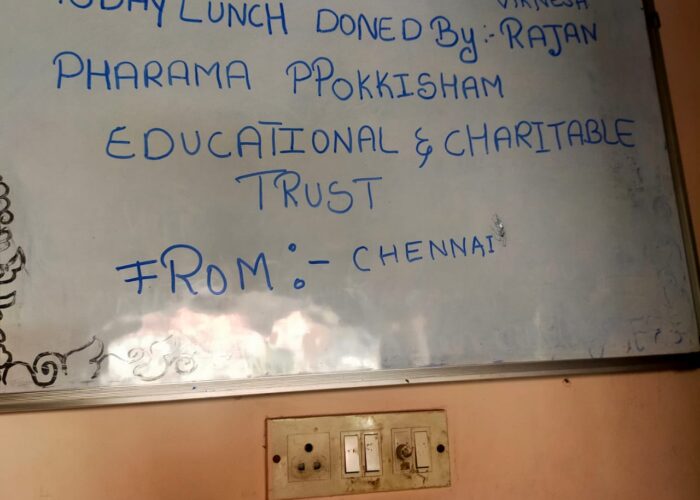 VIKNESH
TODAY LUNCH DONED By:- RAJAN
PHARAMA PPOKKISHAM
EDUCATIONAL & CHARITABLE
TRUST
FROM :- CHENNAI